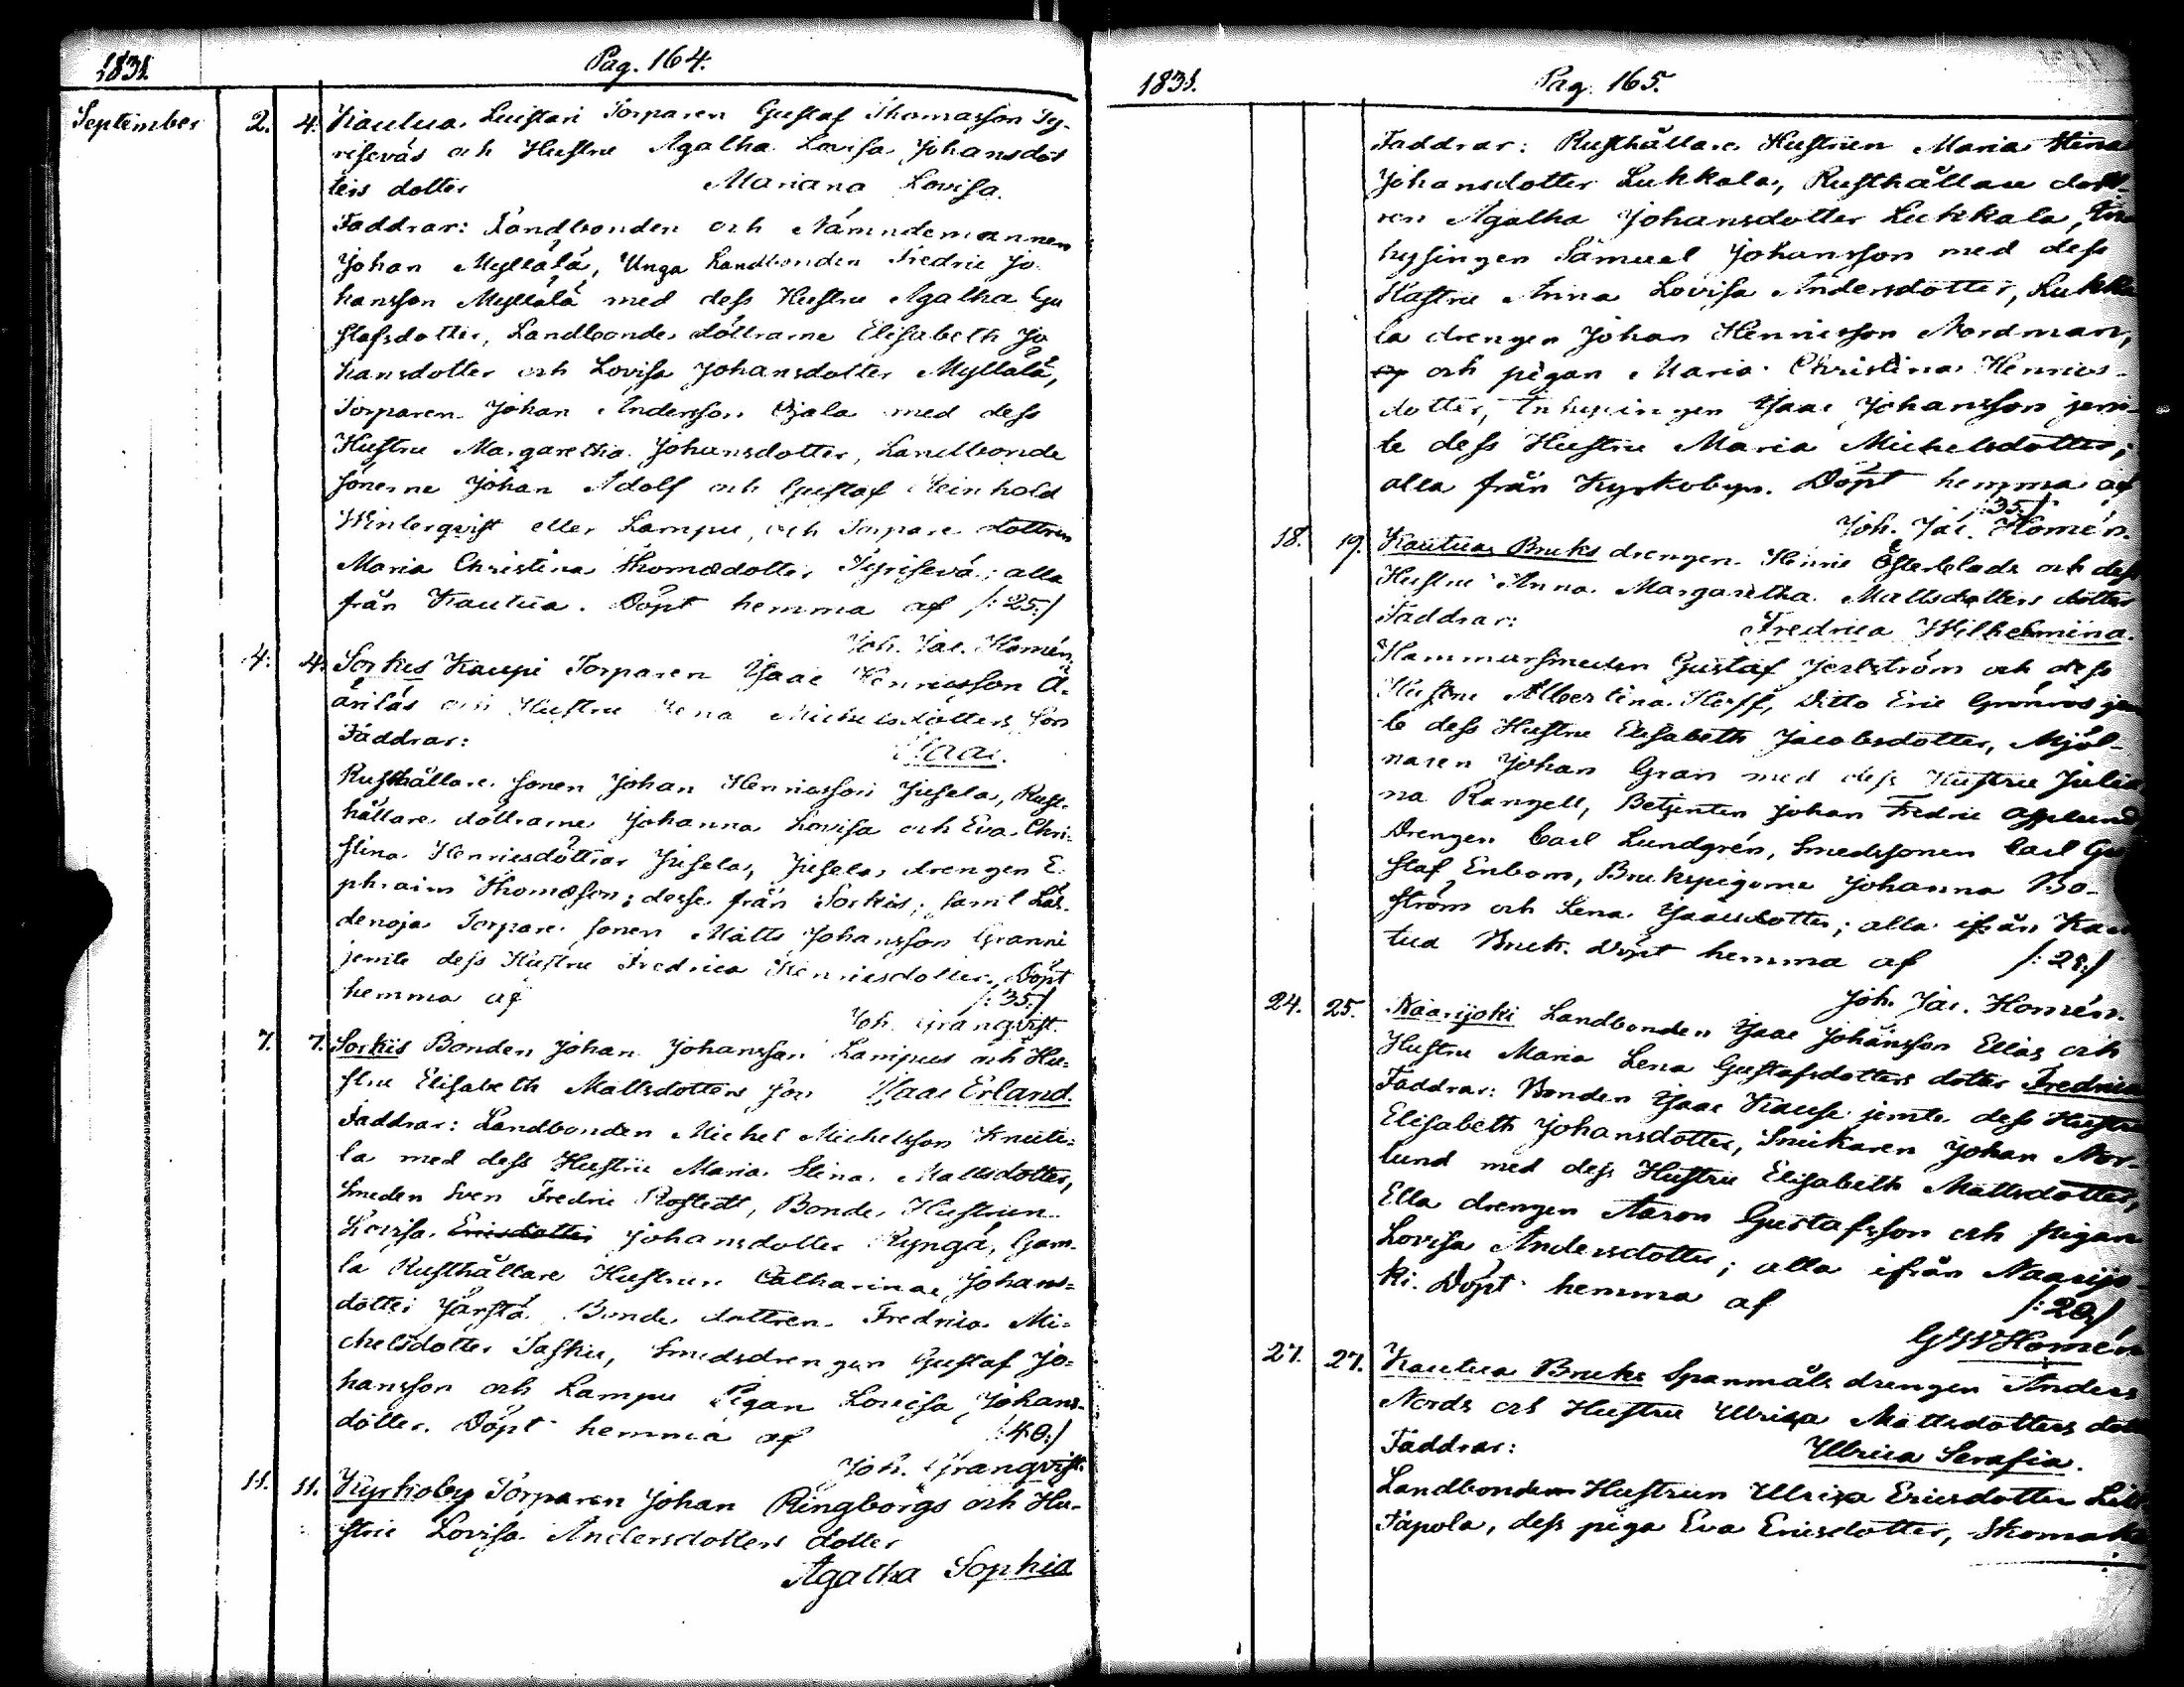 1831.
Pag. 164.
September 2. 4. Kautua Luistari Torparen Gustaf Thomasson Ty-
riseväs och Hustru Agatha Lovisa Johansdot
ters dotter Mariana Lovisa.
Faddrar: Landbonden och Nämndemannen
Johan Myllälä, Unga Landbonden Fredric Jo
hansson Myllälä med dess Hustru Agatha Gu
stafsdotter, Landbonde döttrarne Elisabeth Jo
hansdotter och Lovisa Johansdotter Myllälä,
Torparen Johan Andersson Ojala med dess
Hustru Margaretha Johansdotter, Landbonde
sönerne Johan Adolf och Gustaf Reinhold
Winterqvist eller Lampu, och Torpare dottren
Maria Christina Thomædotter Tyrisevä; alla
från Kautua. Döpt hemma af /:25:/
Joh. Jac. Homén.
4. 4. Sorkis Kaupi Torparen Isaac Henricsson Ä-
äriläs och Hustru Lena Michelsdotters Son
Faddrar: Isaac.
Rusthållare sonen Johan Henricsson Jusela, Rust-
hållare döttrarne Johanna Lovisa och Eva Chri-
stina Henricsdöttrar Jusela, Jusela drengen E-
phraim Thomæson; desse från Sorkis; samt
denoja Torpare sonen Matts Johansson Granni
jemte dess Hustru Fredrica Henricsdotter. Döpt
hemma af /:35:/
Joh. Granqvist.
7. 7. Sorkis Bonden Johan Johansson Lampus och Hu-
stru Elisabeth Mattsdotters son Isaac Erland.
Faddrar: Landbonden Michel Michelsson Knuti-
la med dess Hustru Maria Stina Mattsdotter,
Smeden Sven Fredric Rostedt, Bonde Hustrun
Lovisa Ericsdotter Johansdotter Ryngä, Gam-
la Rusthållare Hustrun Catharina Johans-
dotter Järstä, Bonde dottren Fredrica Mi-
chelsdotter Pasku, Smedsdrengen Gustaf Jo-
hansson och Lampu Pigan Lovisa Johans-
dotter. Döpt hemma af /:40:/
Joh. Granqvist.
11. 11. Kyrkoby Torparen Johan Ringborgs och Hu-
stru Lovisa Andersdotters dotter
Agatha Sophia
1831.
Pag. 165.
Faddrar: Rusthållare Hustrun Maria Stina
Johansdotter Lukkala, Rusthållare dott-
ren Agatha Johansdotter Lukkala, In
hysingen Samuel Johansson med dess
Hustru Anna Lovisa Andersdotter, Lukka
la drengen Johan Henricsson Nordman,
och pigan Maria Christina Henrics-
dotter, Inhysingen Isaac Johansson jem-
te dess Hustru Maria Michelsdotter;
alla från Kyrkobyn. Döpt hemma af
/:35:/
Joh. Jac. Homén.
18. 19. Kautua Bruks drengen Henric Österblads och dess
Hustru Anna Margaretha Mattsdotters dotter
Faddrar: Fredrica Wilhelmina.
Hammarsmeden Gustaf Jerlström och dess
Hustru Albertina Hoff, Ditto Eric Grönroos jem
te dess Hustru Elisabeth Jacobsdotter, Mjöl-
naren Johan Gran med dess Hustru Julia
na Rangell, Betjenten Johan Fredric Applund
Drengen Carl Lundgrén, Smedssonen Carl Gu
staf Enbom, Brukspigorne Johanna Bo-
ström och Lena Isaacsdotter; alla ifrån Kau
tua Bruk. Döpt hemma af /:28:/
Joh. Jac. Homén.
24. 25. Naarijoki Landbonden Isaac Johansson Ellas och
Hustru Maria Lena Gustafsdotters dotter Fredrica
Faddrar: Bonden Isaac Krause jemte dess Hustru
Elisabeth Johansdotter, Snickaren Johan Nor-
lund med dess Hustru Elisabeth Mattsdotter,
Ella drengen Aaron Gustafsson och pigan
Lovisa Andersdotter; alla ifrån Naarijo-
ki. Döpt hemma af /:20:/
GWHomén
27. 27. Kautua Bruks Spanmåls drengen Anders
Nords och Hustru Ulrica Mattsdotters dott
Faddrar: Ulrica Serafia.
Landbonden Hustrun Ulrica Ericsdotter Lill
Tapola, dess piga Eva Ericsdotter, Skomaka